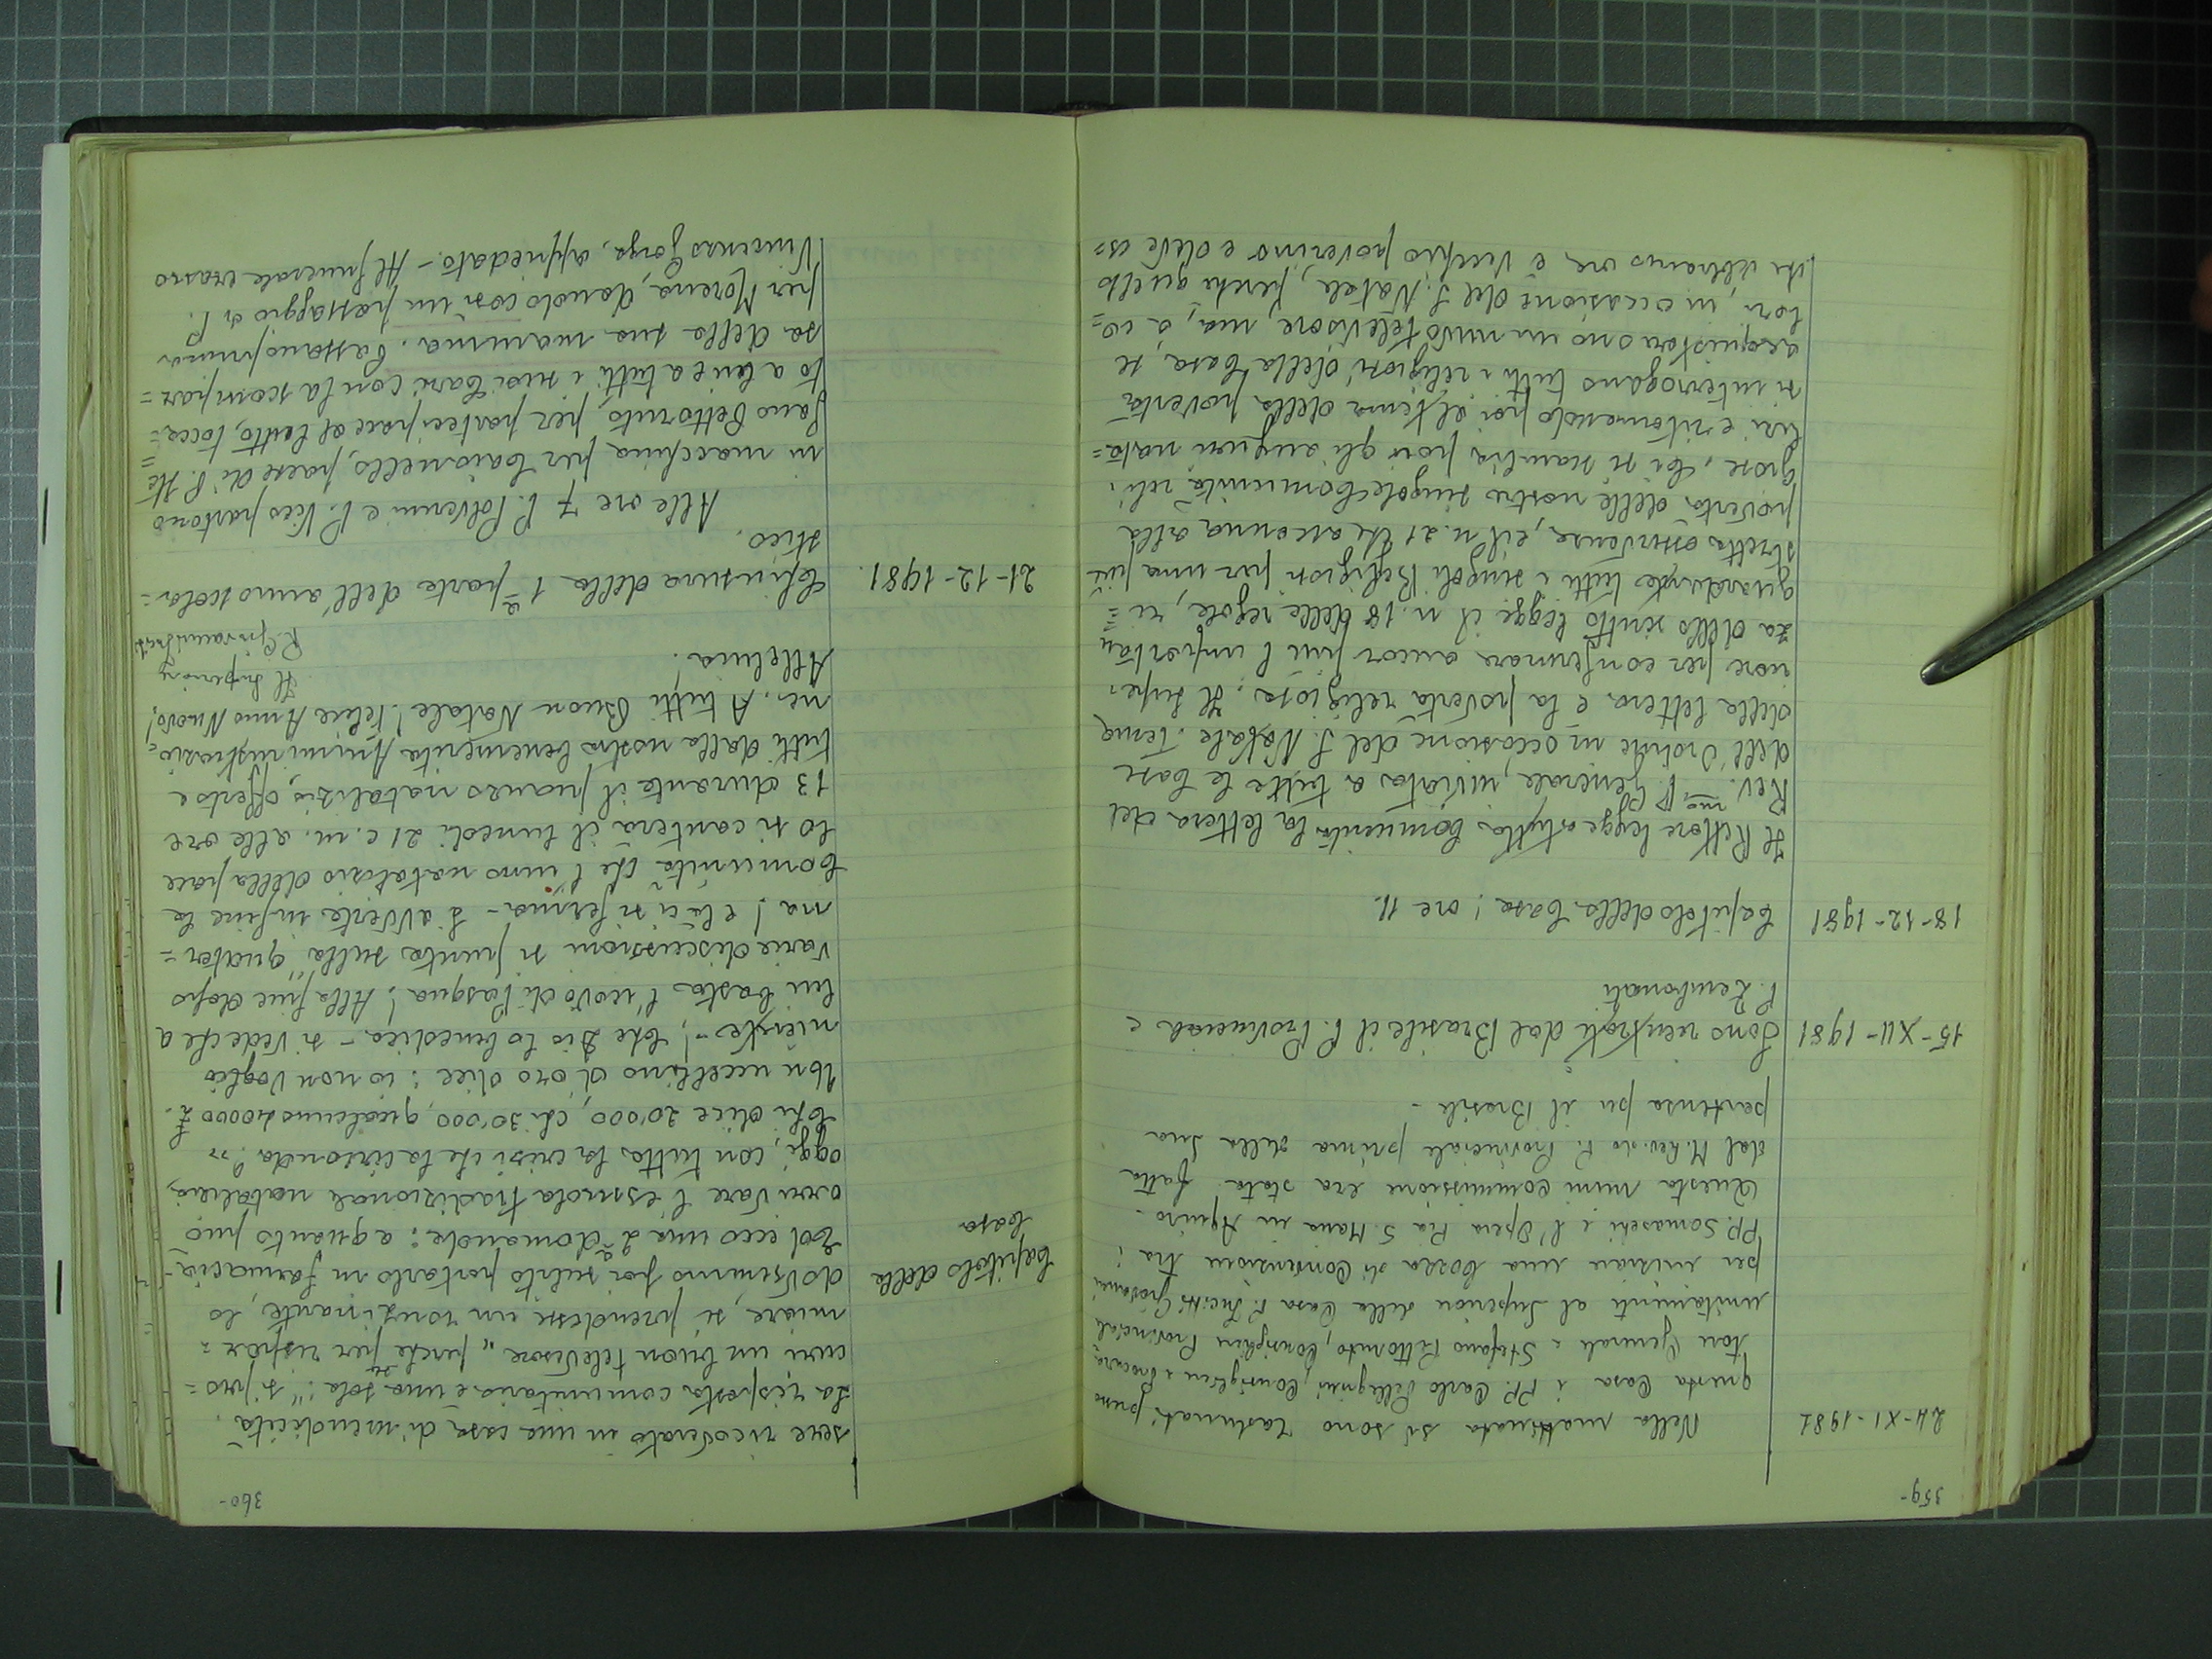 359-
24-XI-1981 Nella mattinata si sono radunati presso
questa Casa i PP. Carlo Pellegrini, Consigliere e Procura=
tore Generale e Stefano Pettoruto, Consigliere Provinciale
unitamente al Superiore della Casa P. Giovanni
per iniziare una bozza di Convenzione tra i
PP. Somaschi e l'Opera Pia S. Maria in Aquiro.
Questa mini commissione era stata fatta
dal M. Rev.do P. Provinciale prima della sua
partenza per il Brasile -
15-XII-1981 Sono rientrati dal Brasile il P. Provinciale e
P. Zambonati
18-12-1981 Capitolo della Casa: ore 11.
Il Rettore legge a tutta Comunità la lettera del
Rev.mo P. Generale, inviata a tutte le Case
dell'Ordine in occasione del S. Natale. Tema
della lettera è la povertà religiosa. Il supe-
riore per confermare ancor più l'importan
za dello scritto legge il n. 18 delle regole, ri=
guardante tutti i singoli Religiosi per una più
stretta osservanza, e il n. 21 che accenna alla
povertà delle nostre singole Comunità reli-
giose. Ci si scambia poi gli auguri nata=
lizi e ritornando poi al tema della povertà
si interrogano tutti i religiosi della Casa, se
acquisteranno un nuovo televisore, ma, a co=
lori, in occasione del S. Natale, perché quello
che abbiamo ora è vecchio poverino e deve es=
360-
sere ricoverato in una casa di mendicità.
La risposta comunitaria è una sola: "si pro=
curi un buon televisore", perché per rispar=
miare, se prendesse un
Capitolo della dovremmo poi subito portarlo in farmacia -
Casa
Ed ecco una 2ª domanda: a quanto può
arrivare l'esimia tradizionale natalizia,
oggi, con tutta la crisi che la circonda? -
Chi dice 20'000, chi 30'000, qualcuno 40000 £.
Un uccellino d'oro dice: io non voglio
niente! - Che Dio lo benedica - si vede che a
lui basta l'uovo di Pasqua! Alla fine dopo
varie discussioni si punta sulla "quater=
na" e là ci si ferma - S'avverte infine la
Comunità che l'inno natalizio della pace
lo si canterà il lunedì 21 c.m. alle ore
13 durante il pranzo natalizio, offerto e
tutti dalla nostra benemerita Amministrazio=
ne. A tutti Buon Natale! Felice Anno Nuovo!
Alleluia.
Il Superiore
21-12-1981. Chiusura della 1ª parte dell'anno scola=
stico.
Alle ore 7 P. Polverini e P. Vico partono
in macchina per Caianello, paese di P. Ste=
fano Pettoruto, per partecipare al lutto, tocca=
to a lui e a tutti i suoi Cari con la scompar=
sa della sua mamma. Passano prima
per Morena, dando così un passaggio a P.
Vincenzo Gorga, appiedato. - Al funerale erano